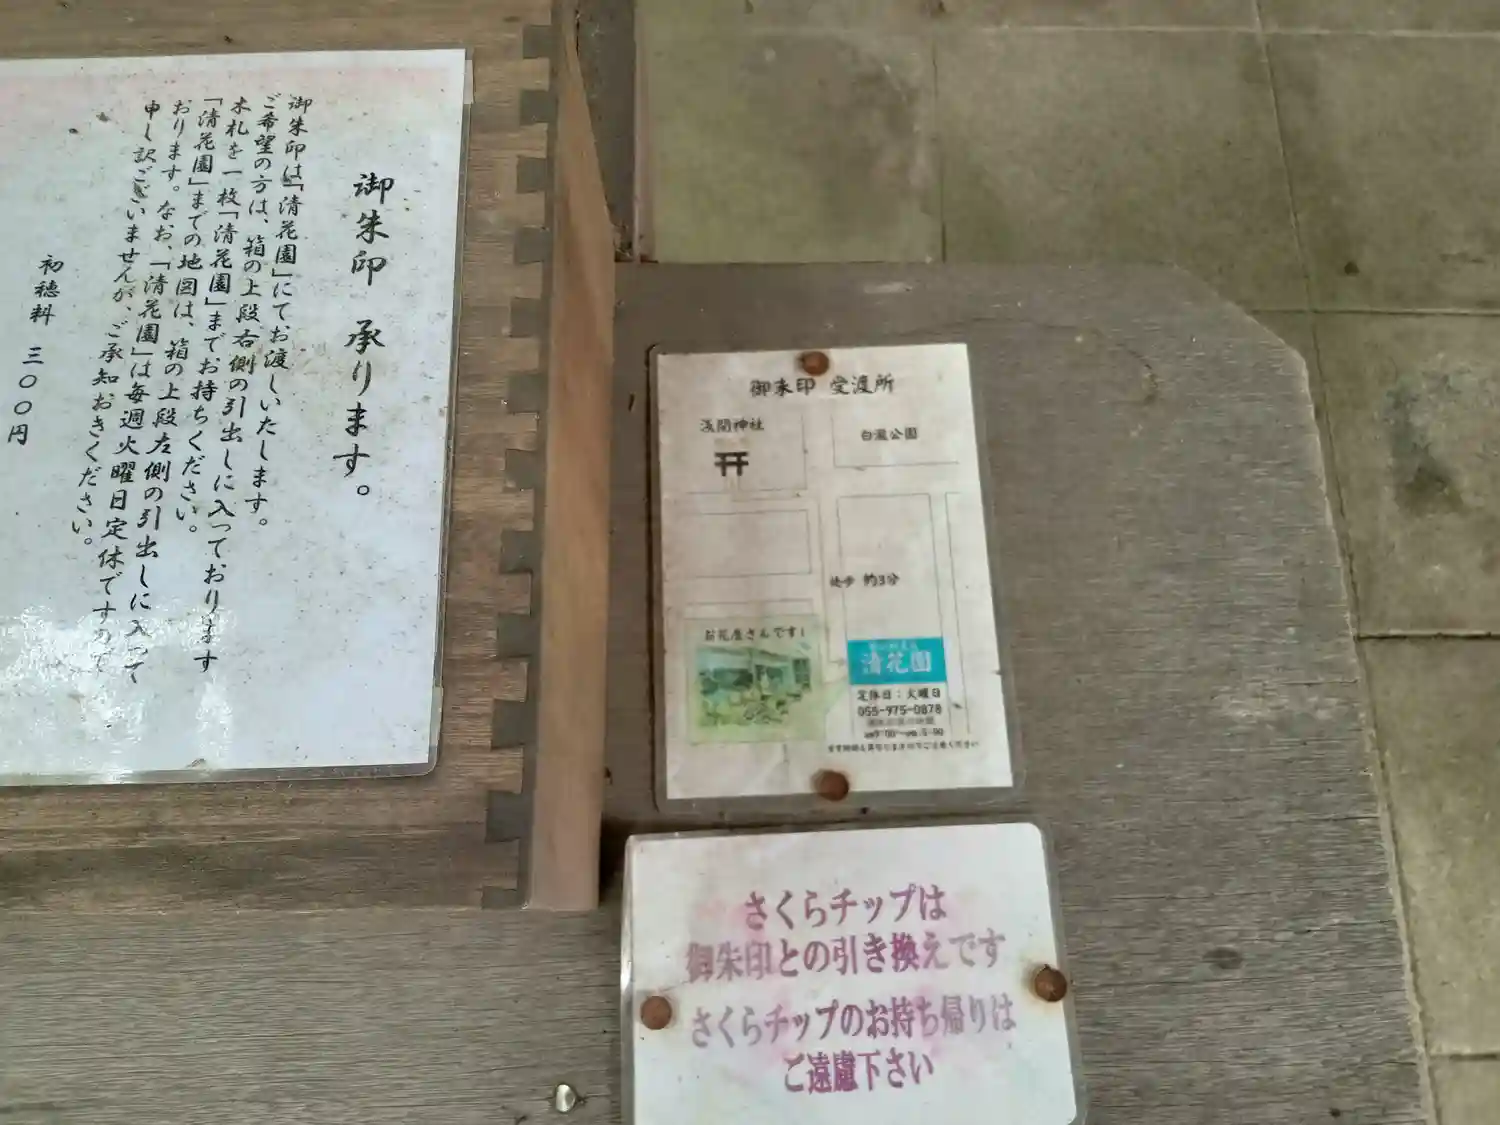 御朱印 承ります。
御朱印は「清花園」にてお渡しいたします。
ご希望の方は、箱の上段右側の引出しに入っております
木札を一枚「清花園」までお持ちください。
「清花園」までの地図は、箱の上段左側の引出しに入って
おります。なお、「清花園」は毎週火曜日定休ですので
申し訳ございませんが、ご承知おきください。
初穂料 三〇〇円
御朱印 受渡所
浅間神社
白滝公園
徒歩 約3分
お花屋さんです!
清花園
定休日:火曜日
055-975-0878
さくらチップは
御朱印との引き換えです
さくらチップのお持ち帰りは
ご遠慮下さい